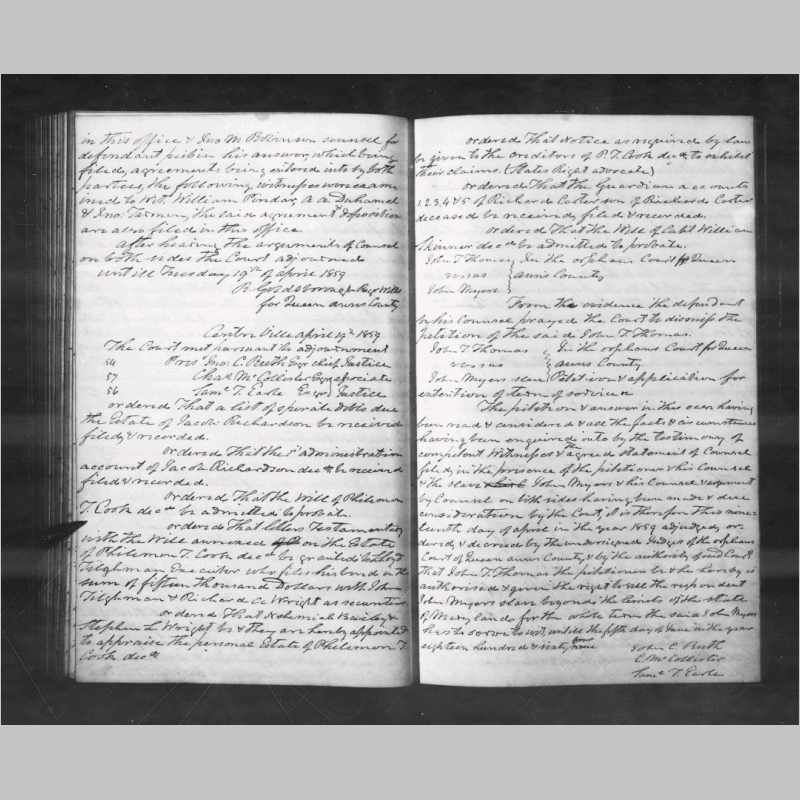 in this office & Jno M Robinson counsel for
defendant puts in his answer, which being
filed, agreements being entered into by both
parties, the following witnesses were exam
ined to wit, William Pindar, A A Duhamel
& Jno. Tarman, the said agreement & depositions
are also filed in this office.
After hearing the arguments of Counsel
on both sides the Court adjourned
untill Tuesday 19th of April 1859
R. Goldsborough Regr Wills
for Queen Anns County
Centre Ville April 19th 1859
The Court met persuant to adjournment
54 Prest Jno. C. Ruth Esqr chief Justice
57 Chas McCollister Esqr associate
56 Saml T. Earle Esqr Justice
Ordered That a list of sperate debts due
the Estate of Jacob Richardson be received
filed & recorded.
Ordered That the 1st administration
account of Jacob Richardson decd be received
filed & recorded.
Ordered That the Will of Philemon
T. Cook decd be admitted to probate.
Ordered That letters Testamentary
with the Will annexed on the Estate
of Philemon T. Cook decd be granted to Lloyd
Tilghman Executor who files his bond in the
sum of fifteen thousand Dollars with John
Tilghman & Richard C. Wright as securities
Ordered That Nehemiah Bailey &
Stephen L. Wright be & they are hereby appointed
to appraise the personal Estate of Philemon T.
Cook decd
Ordered That Notice as required by law
be given to the creditors of P. T. Cook decd to exhibit
their claims. (States Right advocate)
Ordered That the Guardian accounts
1,2,3,4 & 5 of Richard Carter son of Richard Carter
deceased be received, filed & recorded.
Ordered That the Will of Catl William
Skinner decd be admitted to probate.
John T. Thomas In the orphans Court for Queen
versus anns County
John Myers
From the evidence the defendant
by his Counsel prayed the Court to dismiss the
petition of the said John T. Thomas.
John T Thomas In the orphans Court for Queen
versus anns County
John Myers slave Petition & application for
extention of term of service
The petition & answer in this case having
been read & considered & all the facts & circumstances
having been enquired into by the testimony of
competent Witnesses & agreed statement of Counsel
filed, in the presence of the petitioner & his Counsel
& the slave John Myers & his Counsel & argument
by Counsel on both sides having been made & due
consideration by the Court, it is therefore this nine-
teenth day of April in the year 1859 adjudged, or-
dered, & decreed by the undersigned Judges of the orphans
Court of Queen anns County, & by the authority of said Court
that John T. Thomas the petitioner be & he hereby is
authorised & given the right to sell the respondent
John Myers slave beyond the limits of the state
of Maryland for the whole term the said John Myers
has to serve to wit, untill the fifth day of June in the year
eighteen hundred & sixty four
John C. Ruth
C. McCollister
Saml T. Earle